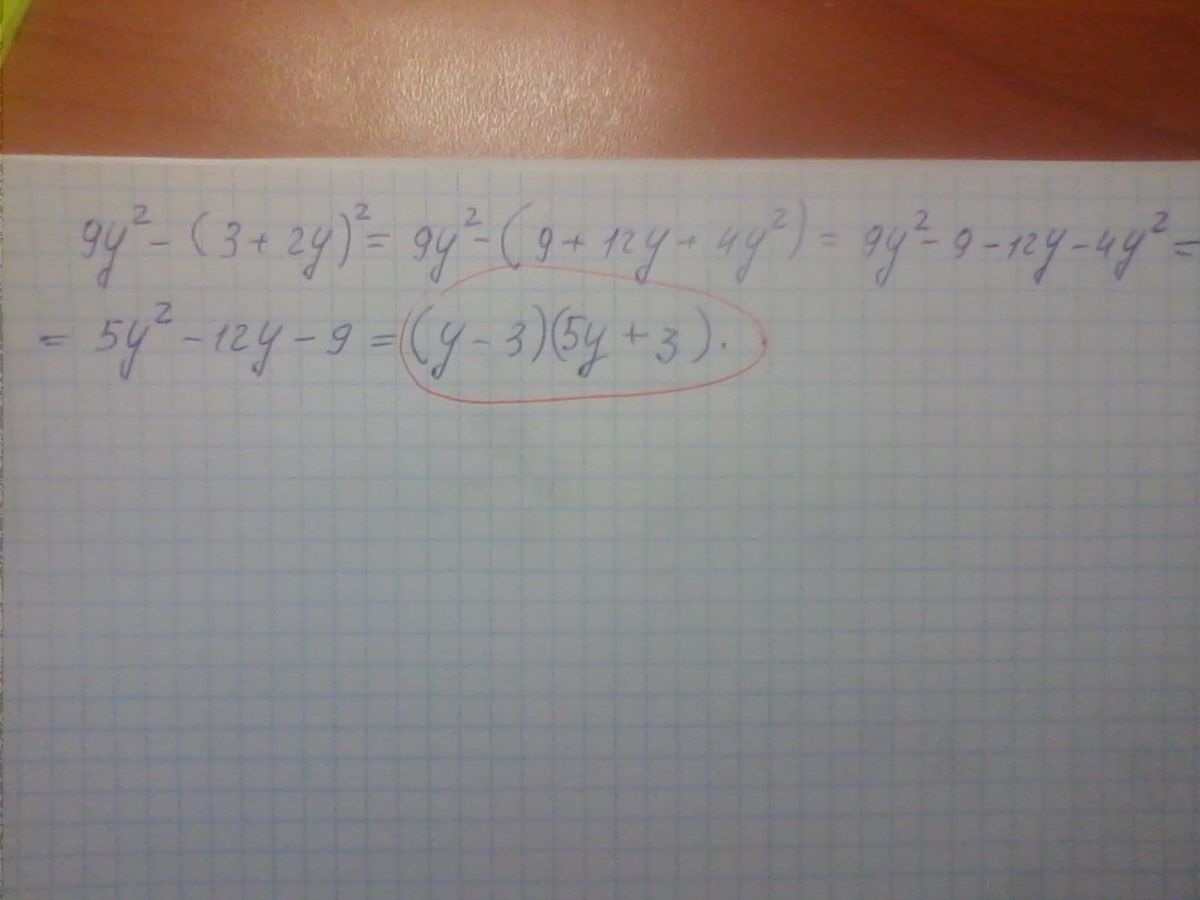 9y² - (3 + 2y)² = 9y² - (9 + 12y + 4y²) = 9y² - 9 - 12y - 4y² =
= 5y² - 12y - 9 = (y - 3)(5y + 3).